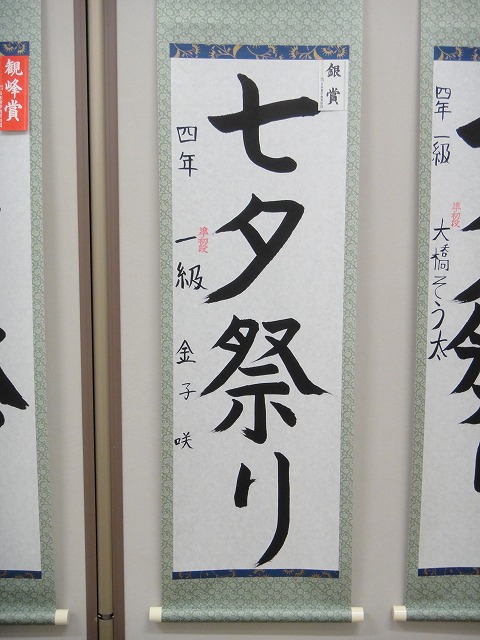 観峰賞
銀賞
七夕祭り
四年 一級 金子咲
準初段
四年 一級 大橋そう太
準初段